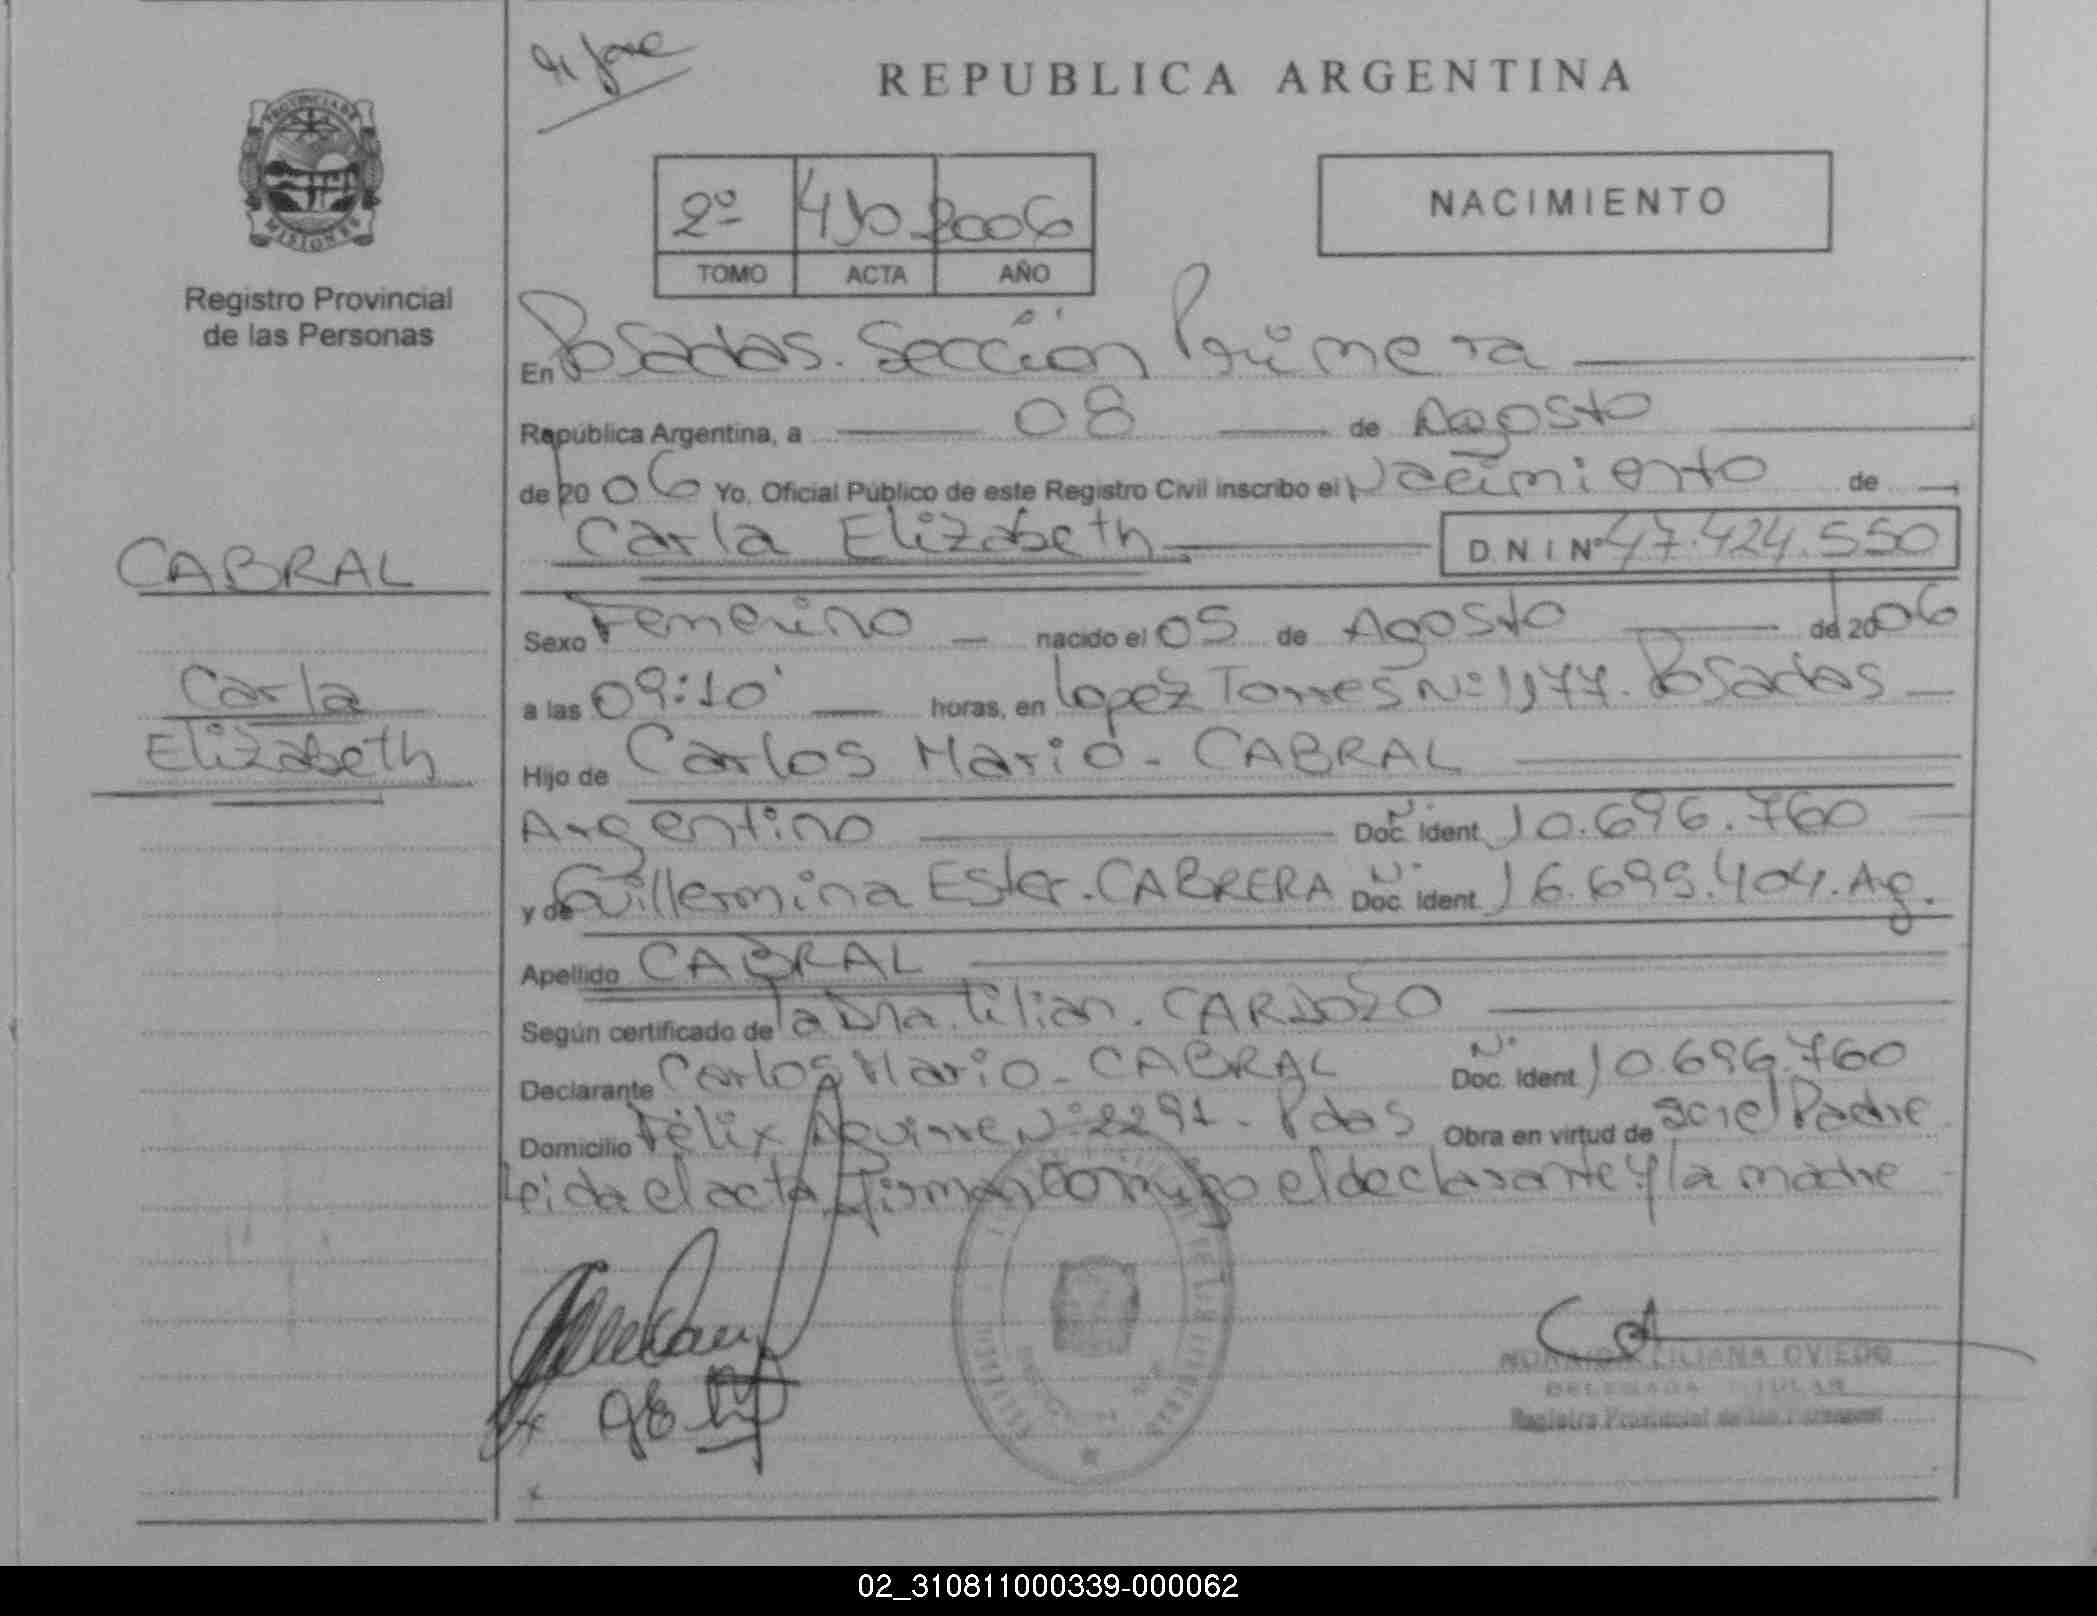 REPUBLICA ARGENTINA
PROVINCIA DE
MISIONES
Registro Provincial
de las Personas
NACIMIENTO
2º 2006
TOMO ACTA AÑO
En Posadas. Sección Primera
República Argentina, a 08 de Agosto
de 2006 Yo, Oficial Público de este Registro Civil inscribo el Nacimiento de
Carla Elizabeth D N I Nº 47.424.550
CABRAL
Carla
Elizabeth
Sexo Femenino nacido el 05 de Agosto de 2006
a las 09:10' horas, en Lopez Torres Nº 1177. Posadas
Hijo de Carlos Mario - CABRAL
Argentino Nº Doc. Ident. 10.696.760
y de Guillermina Ester. CABRERA Nº Doc. Ident. 16.695.404. Arg.
Apellido CABRAL
Según certificado de la Dra. Lilian. CARDOZO
Declarante Carlos Mario - CABRAL Nº Doc. Ident. 10.696.760
Domicilio Félix Aguirre Nº 2291 - Pdas Obra en virtud de ser el Padre
Leida el acta, firman conmigo el declarante y la madre
LILIANA OVIEDO
DELEGADA TITULAR
Registro Provincial de las Personas
02_310811000339-000062